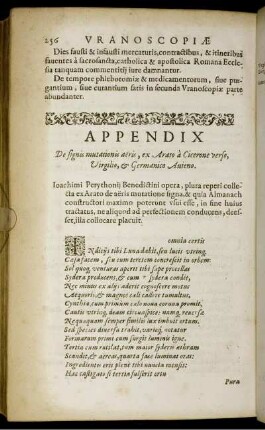 256 VRANOSCOPIÆ
Dies fausti & infausti mercaturis, contractibus, & itineribus
fauentes à sacrosancta, catholica & apostolica Romana Eccle-
sia tanquam commentitij iure damnantur.
De tempore phlebotomiæ & medicamentorum, siue pur-
gantium, siue curantium satis in secunda Vranoscopiæ parte
abundanter.
APPENDIX
De signis mutationis aëris, ex Arato à Cicerone verso,
Virgilio, & Germanico
Ioachimi Perythonij Benedictini opera, plura reperi colle-
cta ex Arato de aëris mutatione signa, & quia Almanach
constructori maximo poterunt vsui esse, in fine huius
tractatus, ne aliquid ad perfectionem conducens, dees-
set, illa collocare placuit.
certis
Indicijs tibi Luna dabit, seu lucis vtrinq;
Casu facem, siu cum tersum concrescit in orbem
Sol quoq; venturas aperit tibi sæpe procellas
Sydera producens, & cum sydera condit,
Nec minus ex alijs aderit cognoscere motus
Aequoris, & magnos cæli radios tumultus,
Cynthia, cum primùm cælo noua cornua promit,
Cautus vtrinq; deam circuspice: namq; recusa
Nequaquam semper similis lux imbuit ortum.
Sed species diuersa trahit, varijsq; notatur
Formarum primùm cum surgit lumine signis.
Tertia cum rutilat, cum maior sydere in orbem
Scandit, & aëreas, quarta fuis luminat oras:
Ingredientis erit picut tibi nuncia mensis:
Hæc vestigato si tertia fulserit ortu
Pura